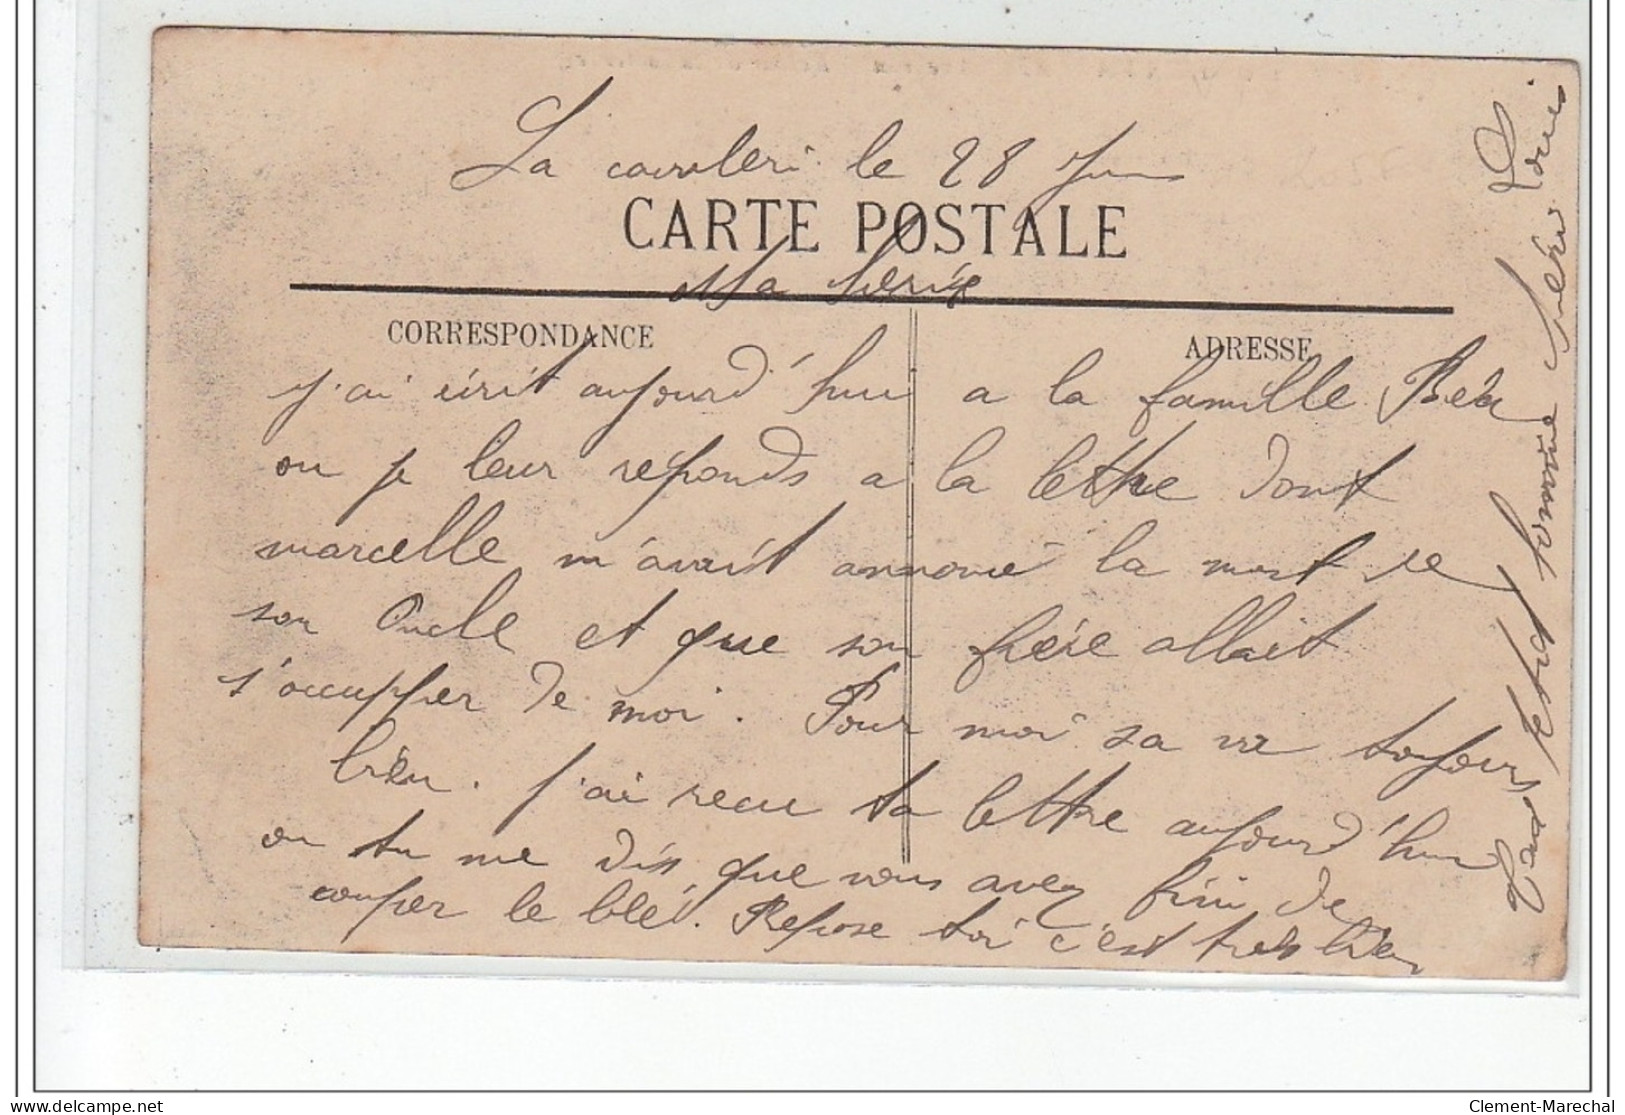 La cavaleri le 28 Juin
CARTE POSTALE
Ma chérie
CORRESPONDANCE
ADRESSE
j'ai écrit aujourd'hui a la famille
ou je leur reponds a la lettre dont
marcelle m'avait annoncé la mort de
son Oncle et que son frère allait
s'occupper de moi. Pour moi sa va toujours
bien. j'ai recu ta lettre aujourd'hui
ou tu me dis que vous avez fini de
couper le blé. Repose toi c'est tres bien
Ton petit homme chéri Louis
Clement-Marechal
delcampe.net